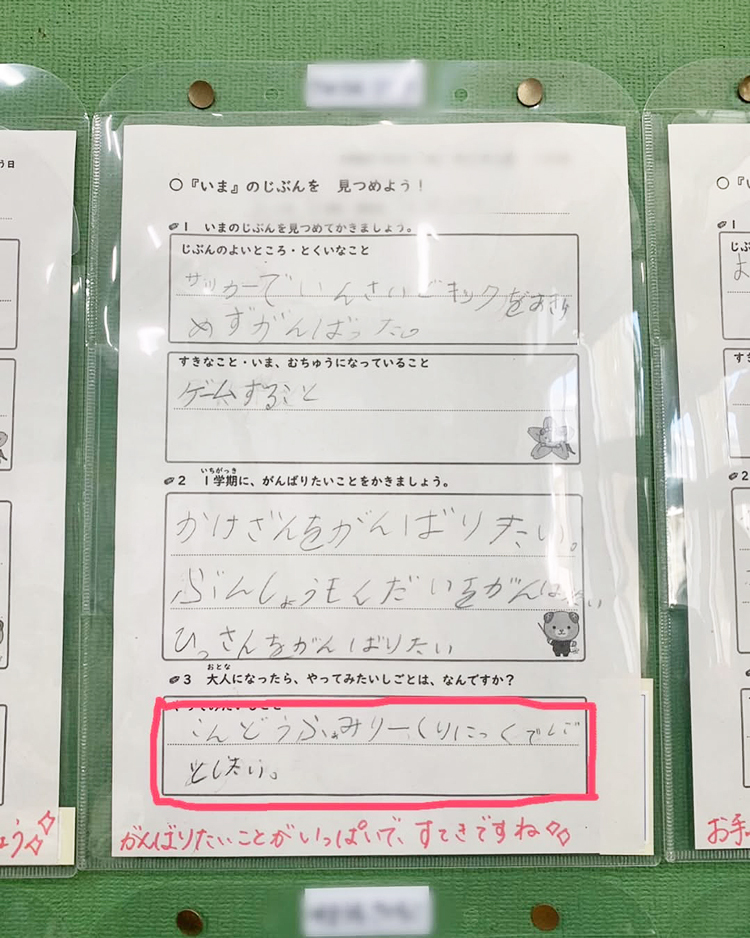 う日
○『いま』のじぶんを 見つめよう！
1 いまのじぶんを見つめてかきましょう。
じぶんのよいところ・とくいなこと
サッカーでいんさいどキックをあきら
めずがんばった。
すきなこと・いま、むちゅうになっていること
ゲームすること
いちがっき
2 1学期に、がんばりたいことをかきましょう。
かけざんをがんばりたい。
ぶんしょうもんだいをがんばりたい
ひっさんをがんばりたい
おとな
3 大人になったら、やってみたいしごとは、なんですか？
こんどうふぁみりーくりにっくでしご
としたい。
がんばりたいことがいっぱいで、すてきですね
ょう
○『い
1
じぶ
お
すき
2
3
お手